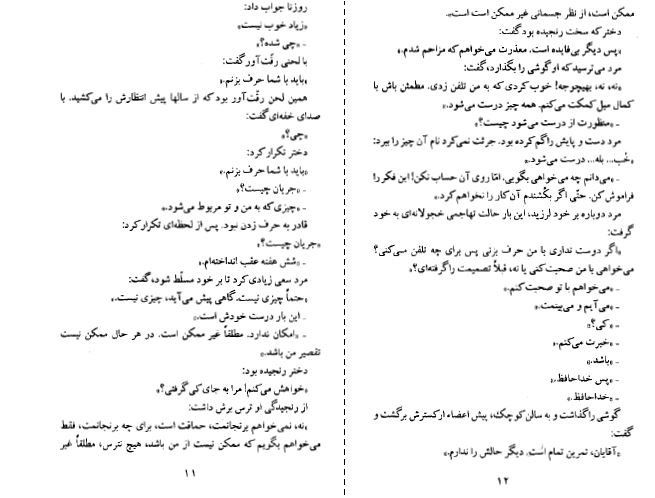 روزنا جواب داد:
«زیاد خوب نیست.»
- «چی شده؟»
با لحنی رقّت‌آور گفت:
«باید با شما حرف بزنم.»
همین لحن رقّت‌آور بود که از سالها پیش انتظارش را می‌کشید. با
صدای خفه‌ای گفت:
«چی؟»
دختر تکرار کرد:
«باید با شما حرف بزنم.»
- «جریان چیست؟»
- «چیزی که به من و تو مربوط می‌شود.»
قادر به حرف زدن نبود. پس از لحظه‌ای تکرار کرد:
«جریان چیست؟»
- «شش هفته عقب انداخته‌ام.»
مرد سعی زیادی کرد تا بر خود مسلّط شود، گفت:
«حتماً چیزی نیست. گاهی پیش می‌آید، چیزی نیست.»
- «این بار درست خودش است.»
- «امکان ندارد. مطلقاً غیر ممکن است. در هر حال ممکن نیست
تقصیر من باشد.»
دختر رنجیده بود:
«خواهش می‌کنم! مرا به جای کی گرفتی؟»
از رنجیدگی او ترس برش داشت:
«نه، نمی‌خواهم برنجانمت، حماقت است، برای چه برنجانمت، فقط
می‌خواهم بگویم که ممکن نیست از من باشد، هیچ نترس، مطلقاً غیر
۱۱
ممکن است، از نظر جسمانی غیر ممکن است است.»
دختر که سخت رنجیده بود گفت:
«پس دیگر بی‌فایده است. معذرت می‌خواهم که مزاحم شدم.»
مرد می‌ترسید که او گوشی را بگذارد، گفت:
«نه، نه، بهیچوجه! خوب کردی که به من تلفن زدی. مطمئن باش با
کمال میل کمکت می‌کنم. همه چیز درست می‌شود.»
- «منظورت از درست می‌شود چیست؟»
مرد دست و پایش را گم کرده بود. جرئت نمی‌کرد نام آن چیز را ببرد:
«خُب... بله... درست می‌شود.»
- «می‌دانم چه می‌خواهی بگویی. امّا روی آن حساب نکن! این فکر را
فراموش کن. حتّی اگر بکُشندم آن کار را نخواهم کرد.»
مرد دوباره بر خود لرزید، این بار حالت تهاجمی خجولانه‌ای به خود
گرفت:
«اگر دوست نداری با من حرف بزنی پس برای چه تلفن می‌کنی؟
می‌خواهی با من صحبت کنی یا نه، قبلاً تصمیمت را گرفته‌ای؟»
- «می‌خواهم با تو صحبت کنم.»
- «می‌آیم و می‌بینمت.»
- «کی؟»
- «خبرت می‌کنم.»
- «باشد.»
- «پس خداحافظ.»
- «خداحافظ.»
گوشی را گذاشت و به سالن کوچک، پیش اعضاء ارکسترش برگشت و
گفت:
«آقایان، تمرین تمام است. دیگر حالش را ندارم.»
۱۲